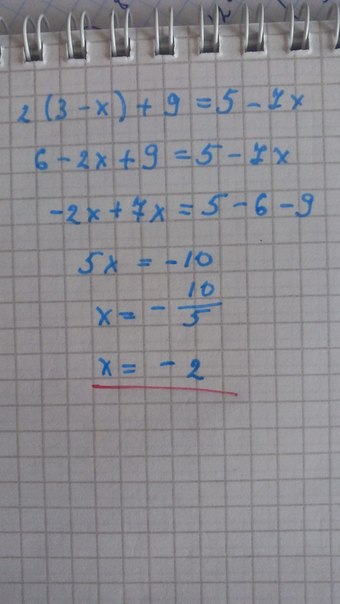 2(3-x)+9=5-7x
6-2x+9=5-7x
-2x+7x=5-6-9
5x=-10
x=-10/5
x=-2